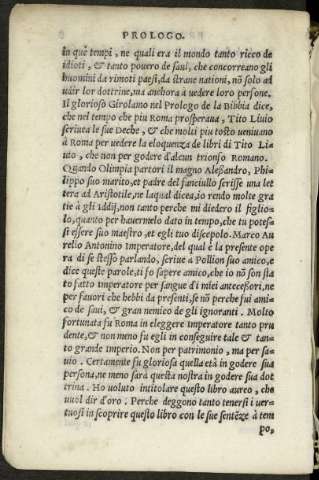 PROLOGO.
in quē tempi, ne quali era il mondo tanto ricco de
idioti, & tanto pouero de saui, che concorreano gli
huomini da rimoti paesi, da strane nationi, nō solo ad
udir lor dottrine, ma anchora à uedere loro persone.
Il glorioso Girolamo nel Prologo de la Bibbia dice,
che nel tempo che piu Roma prosperaua, Tito Liuio
scriueua le sue Deche, & che molti piu tosto ueniuano
à Roma per uedere la eloquenza de libri di Tito Li-
uio, che non per godere d'alcun trionfo Romano.
Quando Olimpia partori il magno Aleßandro, Phi-
lippo suo marito, et padre del fanciullo scriße una let
tera ad Aristotile, ne laqual dicea, io rendo molte gra
tie à gli Iddij, non tanto perche mi diedero il figlio-
lo, quanto per hauermelo dato in tempo, che tu potes-
si essere suo maestro, et egli tuo discepolo. Marco Au
relio Antonino Imperatore, del qual è la presente ope
ra di se steßo parlando, scriue a Pollion suo amico, e
dice queste parole, ti fo sapere amico, che io nō son sta
to fatto imperatore per sangue d'i miei anteceßori, ne
per fauori che hebbi da presenti, se nō perche fui ami-
co de saui, & gran nemico de gli ignoranti. Molto
fortunata fu Roma in eleggere imperatore tanto pru
dente, & non meno fu egli in conseguire tale & tan-
to grande imperio. Non per patrimonio, ma per sa-
uio. Certamente su gloriosa quella età in godere sua
persona, ne meno sarà questa nostra in godere sua dot
trina. Ho uoluto intitolare questo libro aureo, che
uuol dir d'oro. Perche deggono tanto tenersi i uer-
tuosi in scoprire questo libro con le sue sentēze à tem
po,